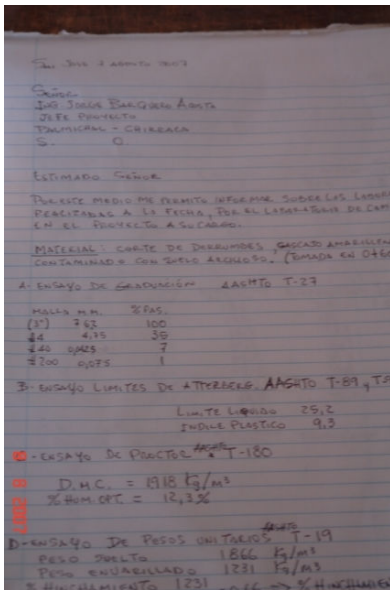 San José 7 Agosto 2007
Señor
Ing Jorge Barquero Acosta
Jefe Proyecto
Palmichal - Chirraca
S. O
Estimado Señor
Por este medio me permito informar sobre las
realizadas a la fecha, por el laboratorio de
en el proyecto a su cargo.
Material: Corte de derrumbes,
contaminado con suelo arcilloso. (Tomada en
A- Ensayo de Graduación AASHTO T-27
Malla M.M. % Pas.
(3") 7 62 100
#4 4,75 35
#40 0,425 7
#200 0,075 1
B- Ensayo Limites de Atterberg, AASHTO T-89,
Limite Liquido 25,2
Indice Plastico 9,3
- Ensayo de Proctor AASHTO T-180
D.M.C. = 1918 Kg/m³
% Hum. Opt. = 12,3%
D- Ensayo de Pesos Unitarios AASHTO T-19
Peso Suelto 1866 Kg/m³
Peso Envarillado 1231 Kg/m³
% Hinchamiento 1231